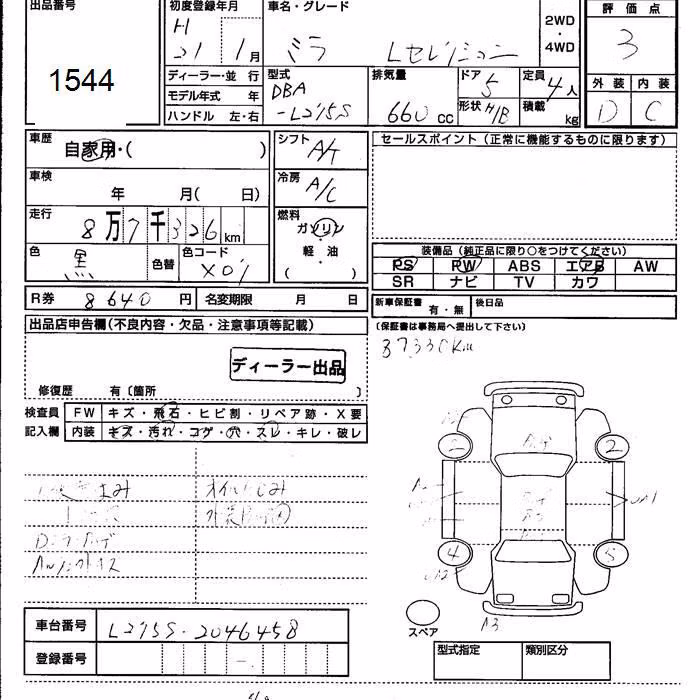 出品番号
1544
初度登録年月
H 21 1月
車名・グレード
ミラ Lセレクション
2WD
・
4WD
評価点
3
外装 内装
D C
ディーラー・並行
モデル年式 年
ハンドル 左・右
型式
DBA
-L275S
排気量
660cc
ドア 5
形状 H/B
定員 4人
積載 kg
車歴
自家用・( )
車検
年 月( 日)
走行
8万7千326km
色
黒
色替
色コード
X07
シフト
A/T
冷房
A/C
燃料
ガソリン
・
軽・油
( )
セールスポイント(正常に機能するものに限ります)
装備品(純正品に限り○をつけてください)
PS PW ABS エアB AW
SR ナビ TV カワ
R券 8640円 名変期限 月 日
新車保証書 有・無 後日品
(保証書は事務局へ提出して下さい)
87330Km
出品店申告欄(不良内容・欠品・注意事項等記載)
ディーラー出品
修復歴 有〔箇所 〕
検査員 FW キズ・飛石・ヒビ割・リペア跡・X要
記入欄 内装 キズ・汚れ・コゲ・穴・スレ・キレ・破レ
2 2
4 5
スペア
A3
車台番号 L275S-2046458
登録番号 -
型式指定 類別区分